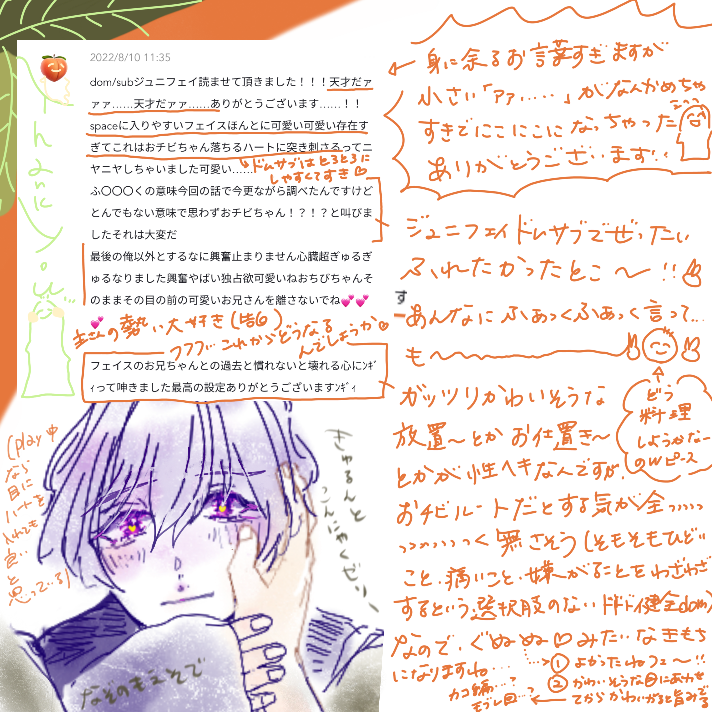 2022/8/10 11:35
dom/subジュニフェイ読ませて頂きました！！！天才だァ
ァァ……天才だァァ……ありがとうございます……！！
spaceに入りやすいフェイスほんとに可愛い可愛い存在す
ぎてこれはおチビちゃん落ちるハートに突き刺さるってニ
ヤニヤしちゃいました可愛い……
↳ドムサブはとろとろに
しやすくてすき♡
ふ〇〇〇くの意味今回の話で今更ながら調べたんですけど
とんでもない意味で思わずおチビちゃん！？！？と叫びま
したそれは大変だ
最後の俺以外とするなに興奮止まりません心臓超ぎゅるぎ
ゅるなりました興奮やばい独占欲可愛いねおちびちゃんそ
のままその目の前の可愛いお兄さんを離さないでね💕💕
💕
主さんの勢い大好き(皆6)
フフフ…これからどうなる
んでしょうか♡
フェイスのお兄ちゃんとの過去と慣れないと壊れる心にﾝｷﾞ
ｨって呻きました最高の設定ありがとうございますﾝｷﾞｨ
身に余るお言葉すぎますが
小さい「ァァ……」がなんかめちゃ
すきでにこにこになっちゃった
ありがとうございます!!
ジュニフェイドムサブでぜったい
ふれたかったとこ〜!!
す
あんなにふぁっくふぁっく言って…
も〜
ガッツリかわいそうな
放置〜とかお仕置き〜
とかが性ヘキなんですが、
おチビルートだとする気が全っっっっっ
っっっっっっく無さそう(そもそもひどい
こと、痛いこと、嫌がることをわざわざ
するという選択肢のないドドド健全dom)
なので、ぐぬぬ♡みたいなきもち
になりますね…
①よかったねフェ〜!!
②かわいそうな目にあわせ
てからかわいがると旨みでる
どう
料理
しようかなー
のWピース
(play中
なら
目に
ハートを
入れても
良い
と
思っている)
きゅるんと
こんにゃくぜりー
なぞのもえそで